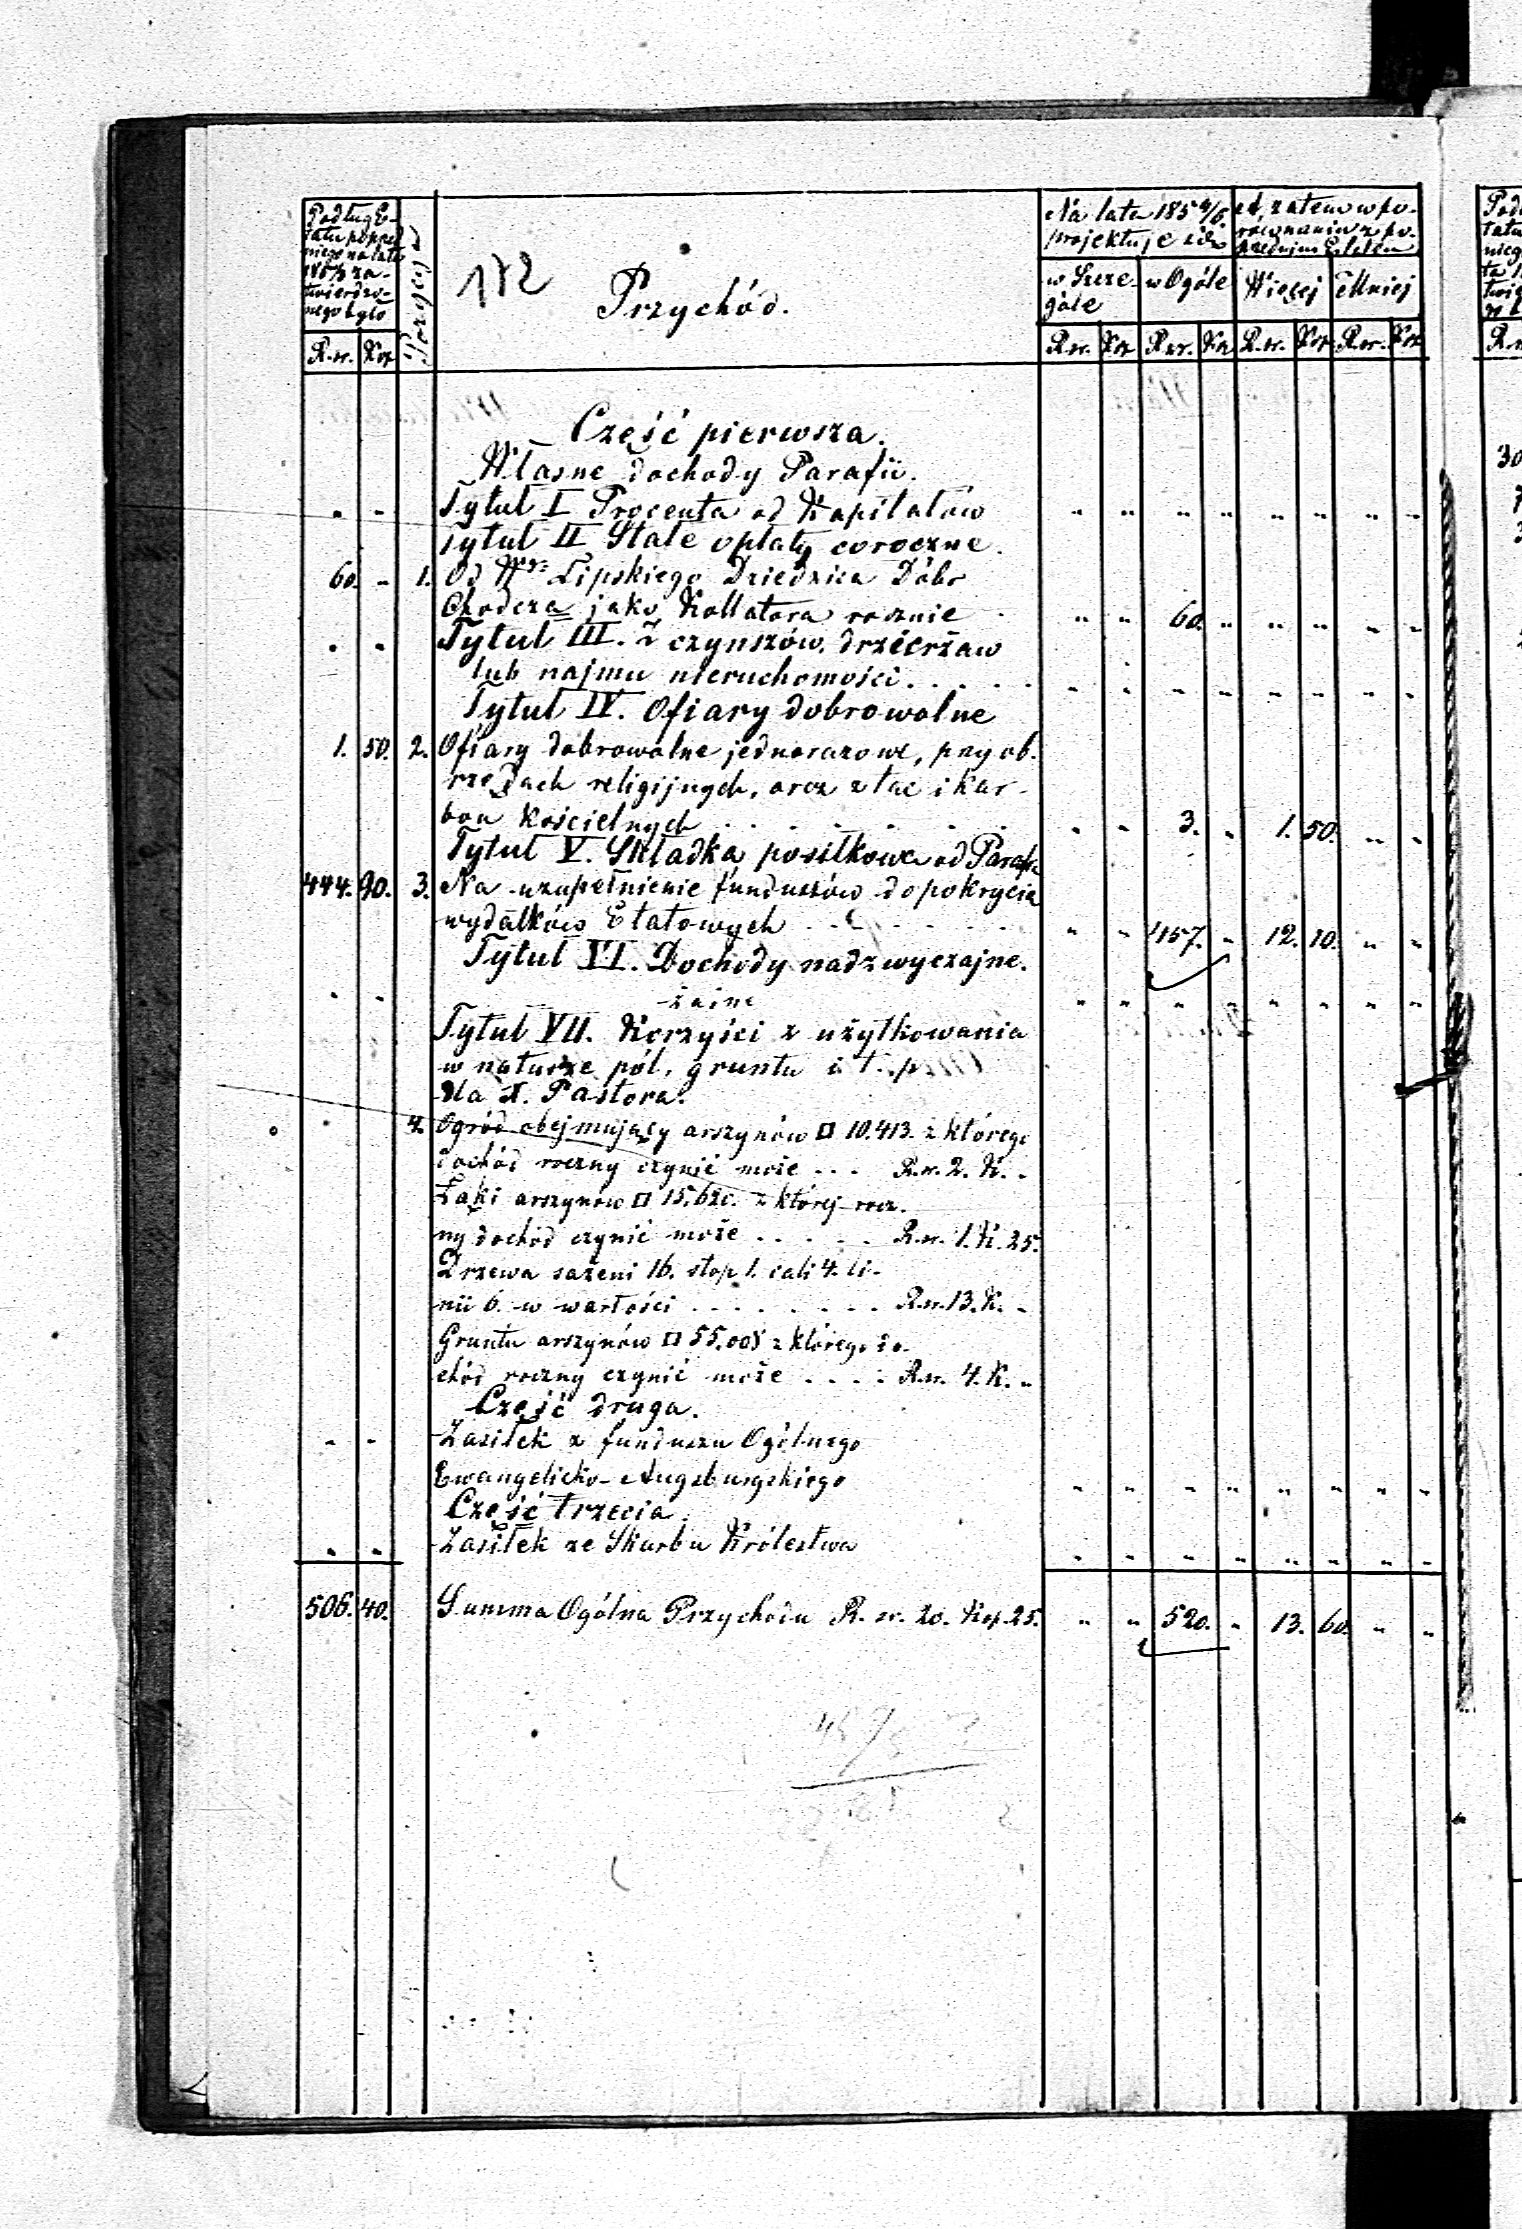 Podług E-
tatu poprzed
niego na lata
za-
twierdzo-
nego było
R.sr. Kop
Pozycya
172
Przychód.
Na lata 185 4/6
projektuje się
w Szcze
góle
w Ogóle
R.sr. Kop R.sr. Kop
A, zatem w po-
równaniu z po-
przednim Etatem
Więcej Mniej
R.sr. Kop R.sr. Kop
Część pierwsza.
Własne dochody Parafii.
Tytuł I Procenta od Kapitałów
Tytuł II Stałe opłaty coroczne.
60. - 1. Od Wgo Lipskiego Dziedzica Dóbr
Chodcza jako Kollatora rocznie 60. -
Tytuł III. Z czynszów, dzierżaw
lub najmu nieruchomości. . . . .
Tytuł IV. Ofiary dobrowolne
1. 50. 2. Ofiary dobrowolne jednorazowe, przy ob-
rzędach religijnych, oraz z tac i kar-
bon kościelnych . . . . . . 3. - 1. 50.
Tytuł V. Składka posiłkowa od Parafii
444. 90. 3. Na uzupełnienie funduszów do pokrycia
wydatków Etatowych . . . . . . 457. - 12. 10.
Tytuł VI. Dochody nadzwyczajne.
żadne
Tytuł VII. Korzyści z użytkowania
w naturze pól, gruntu i t. p.
dla X. Pastora.
4. Ogród obejmujący arszynów □ 10.413. z którego
dochód roczny czynić może . . . R.sr. 2. K. -
Łąki arszynów □ 15.620. z której rocz.
ny dochód czynić może . . . . . R.sr. 1. K. 25.
Drzewa sażeni 16. stop 1. cali 4. li-
nii 6. w wartości . . . . . . . R.sr. 13. K. -
Gruntu arszynów □ 55.008 z którego do-
chód roczny czynić może . . . . R.sr. 4. K. -
Część druga.
Zasiłek z funduszu Ogólnego
Ewangelicko-Augsburgskiego
Część trzecia.
Zasiłek ze Skarbu Królestwa
506. 40. Summa Ogólna Przychodu R. sr. 20. Kop. 25. 520. - 13. 60.